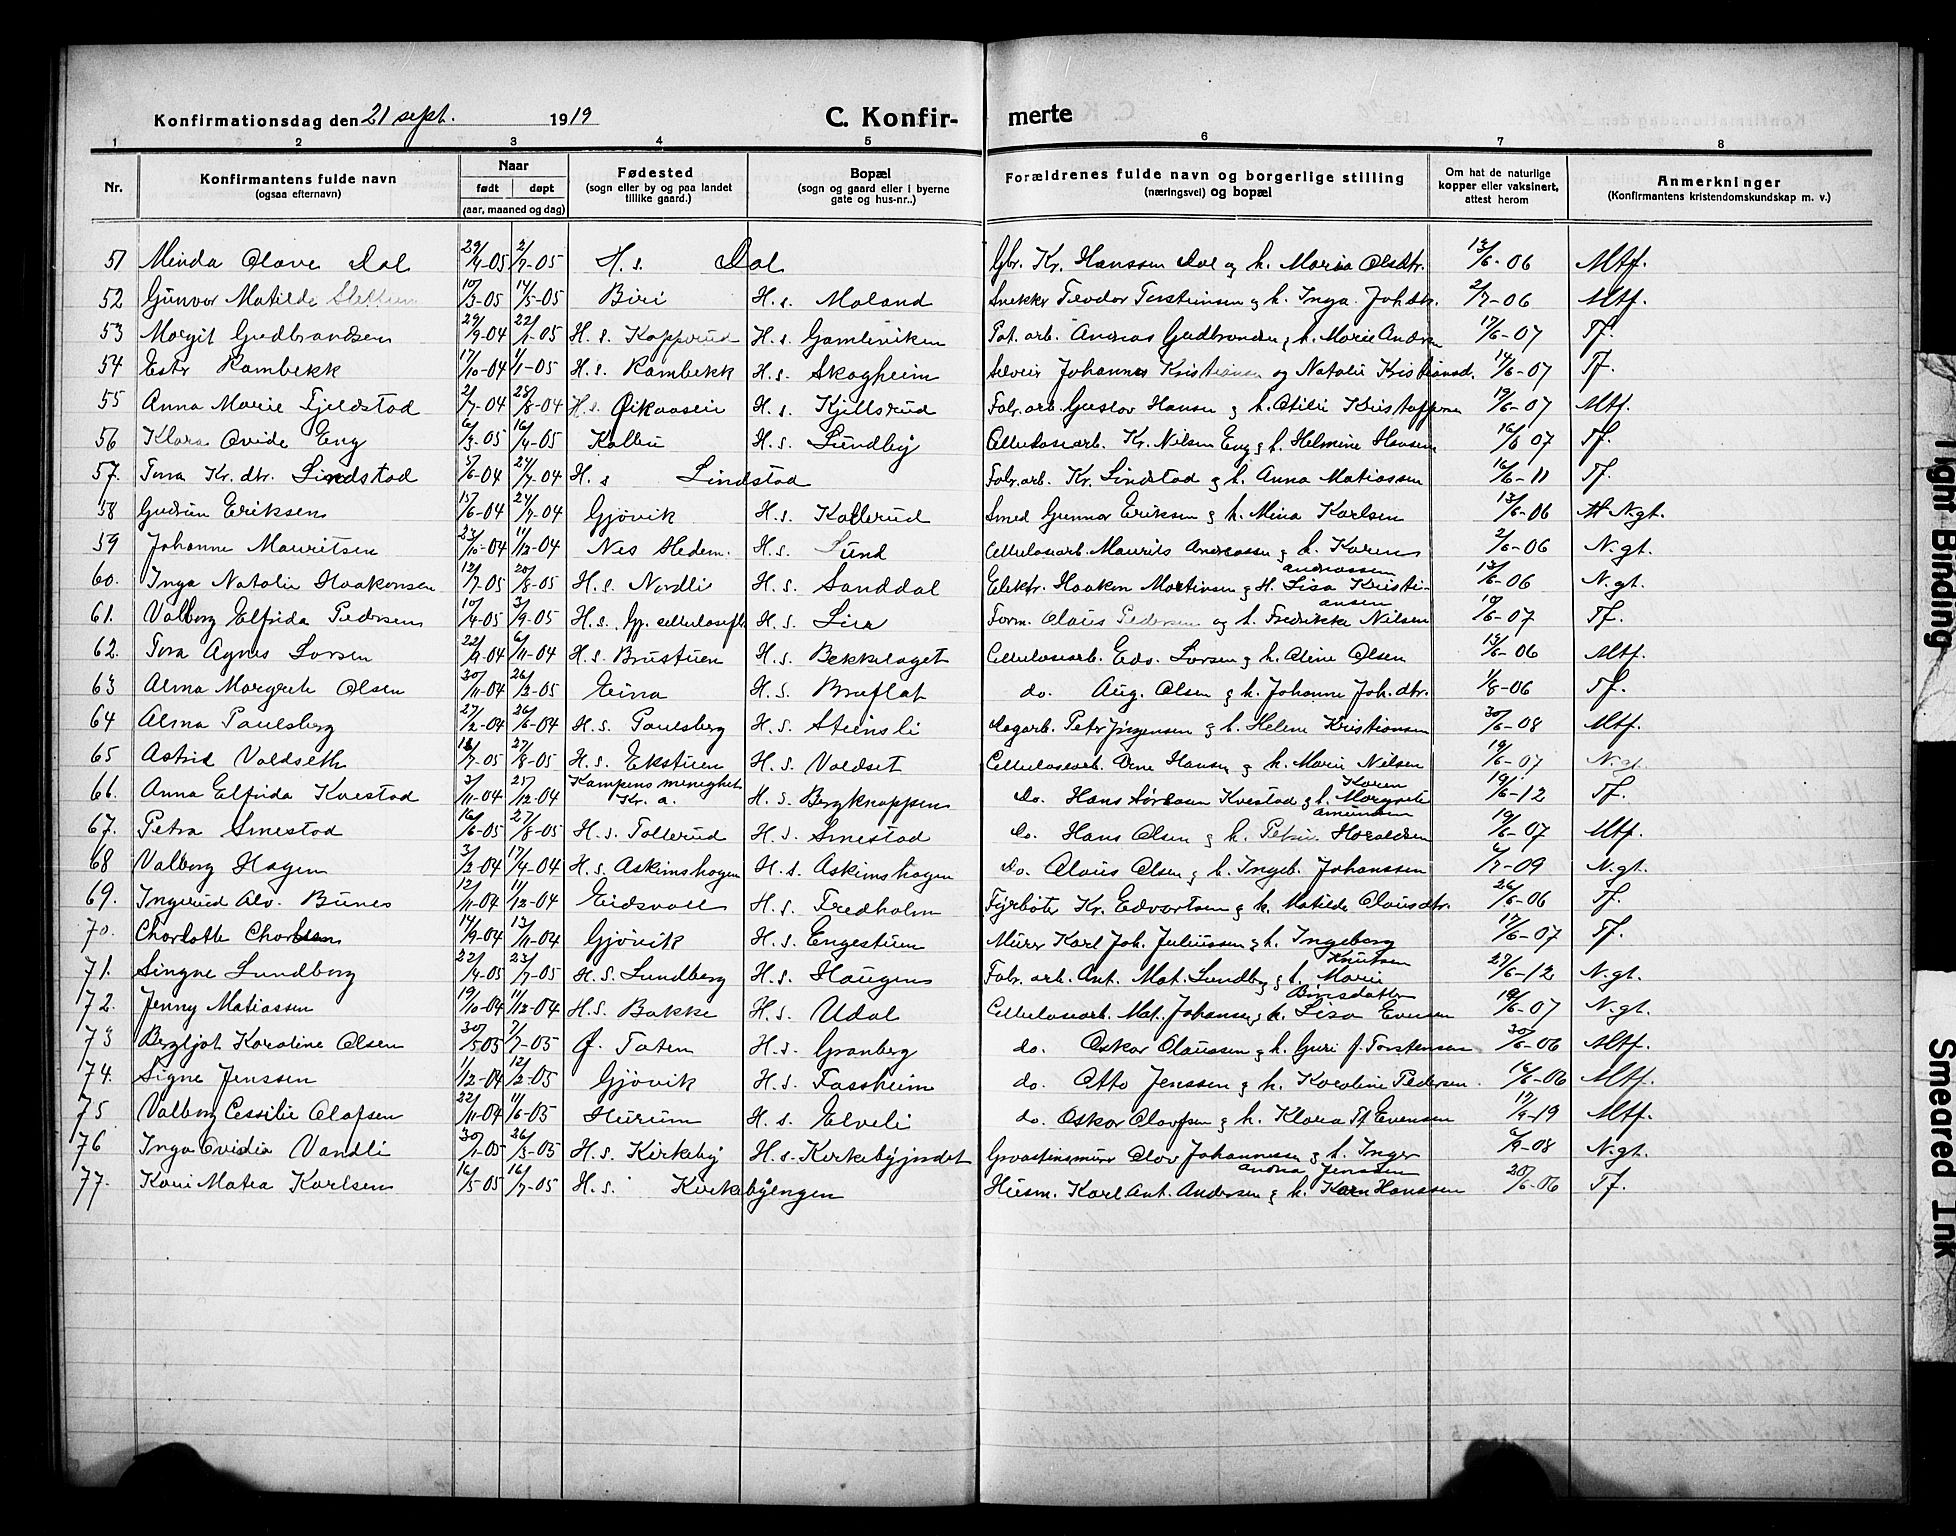 Konfirmationsdag den 21 sept. 1919 C. Konfir- merte
1 2 3 4 5 6 7 8
Nr. Konfirmantens fulde navn (ogsaa efternavn) Naar født døpt (aar, maaned og dag) Fødested (sogn eller by og paa landet tillike gaard.) Bopæl (sogn og gaard eller i byerne gate og hus-nr.) Forældrenes fulde navn og borgerlige stilling (næringsvei) og bopæl Om hat de naturlige kopper eller vaksinert, attest herom Anmerkninger (Konfirmantens kristendomskundskap m. v.)
51 Minda Olave Dal 29/4-05 2/7-05 H. s. Dal Gbr. Kr. Hanssen Dal og h. Maria Olsdtr. 13/6-06 Mtf.
52 Gunvor Matilde 10/3-05 14/5-05 Biri H. s. Moland Snekker Teodor Torstensen & h. Inga Joh.dtr. 2/7-06 Mtf.
53 Margit Gudbrandsen 29/9-04 22/1-05 H. s. Kopperud H. s. Gamleviken Pot. arb. Andreas Gudbrandsen & h. Marie Andrsn 17/6-07 Tf.
54 Ester Rambekk 17/10-04 1/1-05 H. s. Rambekk H. s. Skogheim Johannes Kristiansen og Natalie Kristiansd. 14/6-07 Tf.
55 Anna Marie Fjeldstad 2/7-04 28/8-04 H. s. H. s. Kjellsrud Fabr. arb. Gustav Hansen & h. Otilie Kristoffersen 19/6-07 Mtf.
56 Klara Ovide Eng 6/3-05 16/4-05 Kolbu H. s. Lundby Cellulosearb. Kr. Nilsen Eng & h. Helmine Hansen 16/6 07 Tf.
57. Tora Kr. dtr. Lindstad 5/6-04 24/7-04 H. s. Lindstad Fabr. arb. Kr. Lindstad & h. Anna Matiassen 16/6-11 Tf.
58 Gudrun Eriksen 15/6-04 24/7-04 Gjøvik H. s. Kallerud Smed Gunnar Eriksen & h. Mina Karlsen 13/6-06 N.gt.
59 Johanne Mauritsen 23/10-04 11/12-04 Nes Hedem. H. s. Sund Cellulosearb. Maurits Andreassen & h. Karen Andreassen 2/6-06 N.gt.
60. Inga Natalie Haakensen 12/7-05 20/8-05 H. s. Nordli H. s. Sanddal Elektr. Haakon Martinsen & H. Lisa Kristiansen 13/6-06 N.gt.
61. Valborg Elfrida Pedersen 10/4-05 3/9-05 H. s. Gj. cellulosefb. H. s. Lier Form. Olaus Pedersen og h. Fredrikke Nilsen 19/6-07 Tf.
62. Tora Agnes Larsen 22/9-04 6/11-04 H. s. Brustuen H. s. Bekkelaget Cellulosearb. Edv. Larsen & h. Oline Olsen 13/6-06 Mtf.
63 Alma Margrete Olsen 30/11-04 26/2-05 Eina H. s. Bruflat do. Aug. Olsen & h. Johanne Joh. dtr. 1/8-06 Tf.
64 Alma Paulsberg 27/2-04 26/6-04 H. s. Paulsberg H. s. Steinsli Dagarb. Peter Jörgensen & h. Helene Kristiansen 30/6-08 Mtf.
65 Astrid Valdseth 18/7-05 27/8-05 H. s. Ekstuen H. s. Valdset Cellulosearb. Arne Hansen & h. Marie Nilsen 19/6-07 N.gt.
66. Anna Elfrida Kvestad 3/11-04 25/12-04 Kampens menighet Kr. a. H. s. Bergknappen do. Hans Kvestad & h. Karen Margrete Amundsen 19/6-12 Tf.
67. Petra Smestad 16/6-05 27/8-05 H. s. Tollerud H. s. Smestad do. Hans Olsen & h. Petra Haraldsen 19/6-07 Mtf.
68 Valborg Hagen 3/2-04 17/4-04 H. s. Askimshagen H. s. Askimshagen do. Olaus Olsen & h. Ingeb. Johanssen 6/7-09 N.gt.
69. Ingerud Alv. Bunes 12/11-04 11/12-04 Eidsvoll H. s. Fredholm Fyrböter Kr. Edvartsen & h. Matilde Olausdtr. 26/6-06 Tf.
70. Charlotte Charlsen 14/9-04 13/11-04 Gjövik H. s. Engestuen Murer Karl Joh. Juliussen & h. Ingeborg Knutsen 17/6-07 Tf.
71. Singne Lundberg 22/4-05 23/7-05 H. s. Lundberg H. s. Haugen Fabr. arb. Ant. Mat. Lundberg & h. Marie Börsdatter 27/6-12 N.gt.
72. Jenny Matiassen 19/10-04 11/12-04 H. s. Bakke H. s. Udal Cellulosearb. Mat. Johansen & h. Lisa Evensen 19/6-07 N.gt.
73 Bergljot Karoline Olsen 30/5 05 7/7-05 Ø. Toten H. s. Granberg do. Oskar Olaussen & h. Guri J. Torstensen 30/6-06 Mtf.
74. Signe Jenssen 1/12-04 12/2-05 Gjövik H. s. Fossheim do. Otto Jenssen & h. Karoline Pedersen 16/6-06 Mtf.
75 Valborg Cessilie Olafsen 22/11-04 11/6-05 Hurum H. s. Elveli do. Oskar Olafsen & h. Klara M. Evensen 17/9-19 Mtf.
76 Inga Ovidia Vandli 30/1-05 26/3-05 H. s. Kirkeby H. s. Kirkebyjordet Graastensmurer Olav Johannessen & h. Inger Andrea Jenssen 6/9-08 N.gt.
77. Kari Matea Karlsen 16/5-05 16/7-05 H. s. Kirkebyengen Husm. Karl Ant. Andersen & h. Karen Hanssen 20/6-06 Tf.
Tight Binding
Smeared Ink